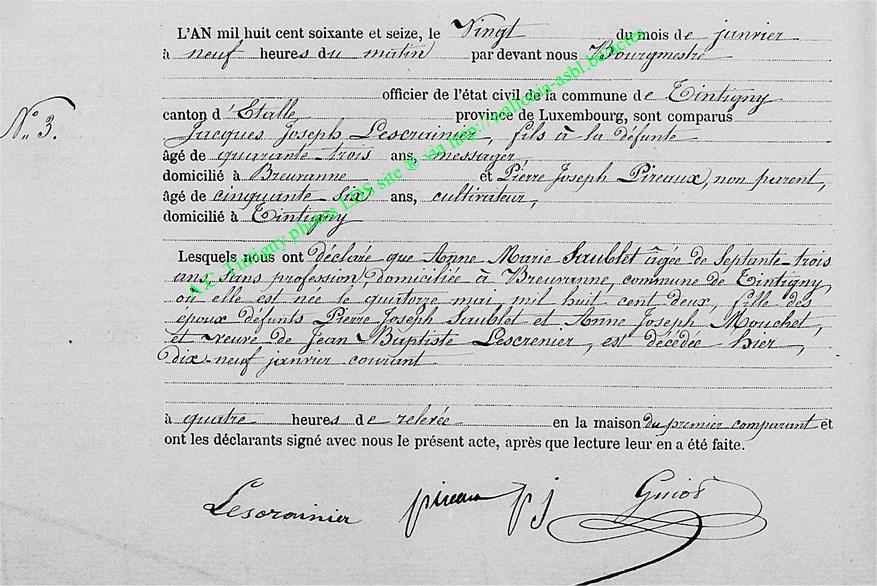 L'AN mil huit cent soixante et seize, le Vingt du mois de janvier
à neuf heures du matin par devant nous Bourgmestre
officier de l'état civil de la commune de Tintigny
N° 3.
canton d'Etalle province de Luxembourg, sont comparus
Jacques Joseph Lescrainier, fils à la défunte
âgé de quarante-trois ans, messager,
domicilié à Breuvanne et Pierre Joseph Pireaux, non parent,
âgé de cinquante-six ans, cultivateur,
domicilié à Tintigny
Lesquels nous ont déclaré que Anne Marie Saublet âgée de septante-trois
ans, sans profession, domiciliée à Breuvanne, commune de Tintigny,
où elle est née le quatorze mai mil huit cent deux, fille des
époux défunts Pierre Joseph Saublet et Anne Joseph Mouchet,
et veuve de Jean Baptiste Lescrenier, est décédée hier,
dix-neuf janvier courant
à quatre heures de relevée en la maison du premier comparant et
ont les déclarants signé avec nous le présent acte, après que lecture leur en a été faite.
Lescrainier pireaux pj Guiot
A.C. Tintigny photos LDS site @ via http://wallonia-asbl.be/actes